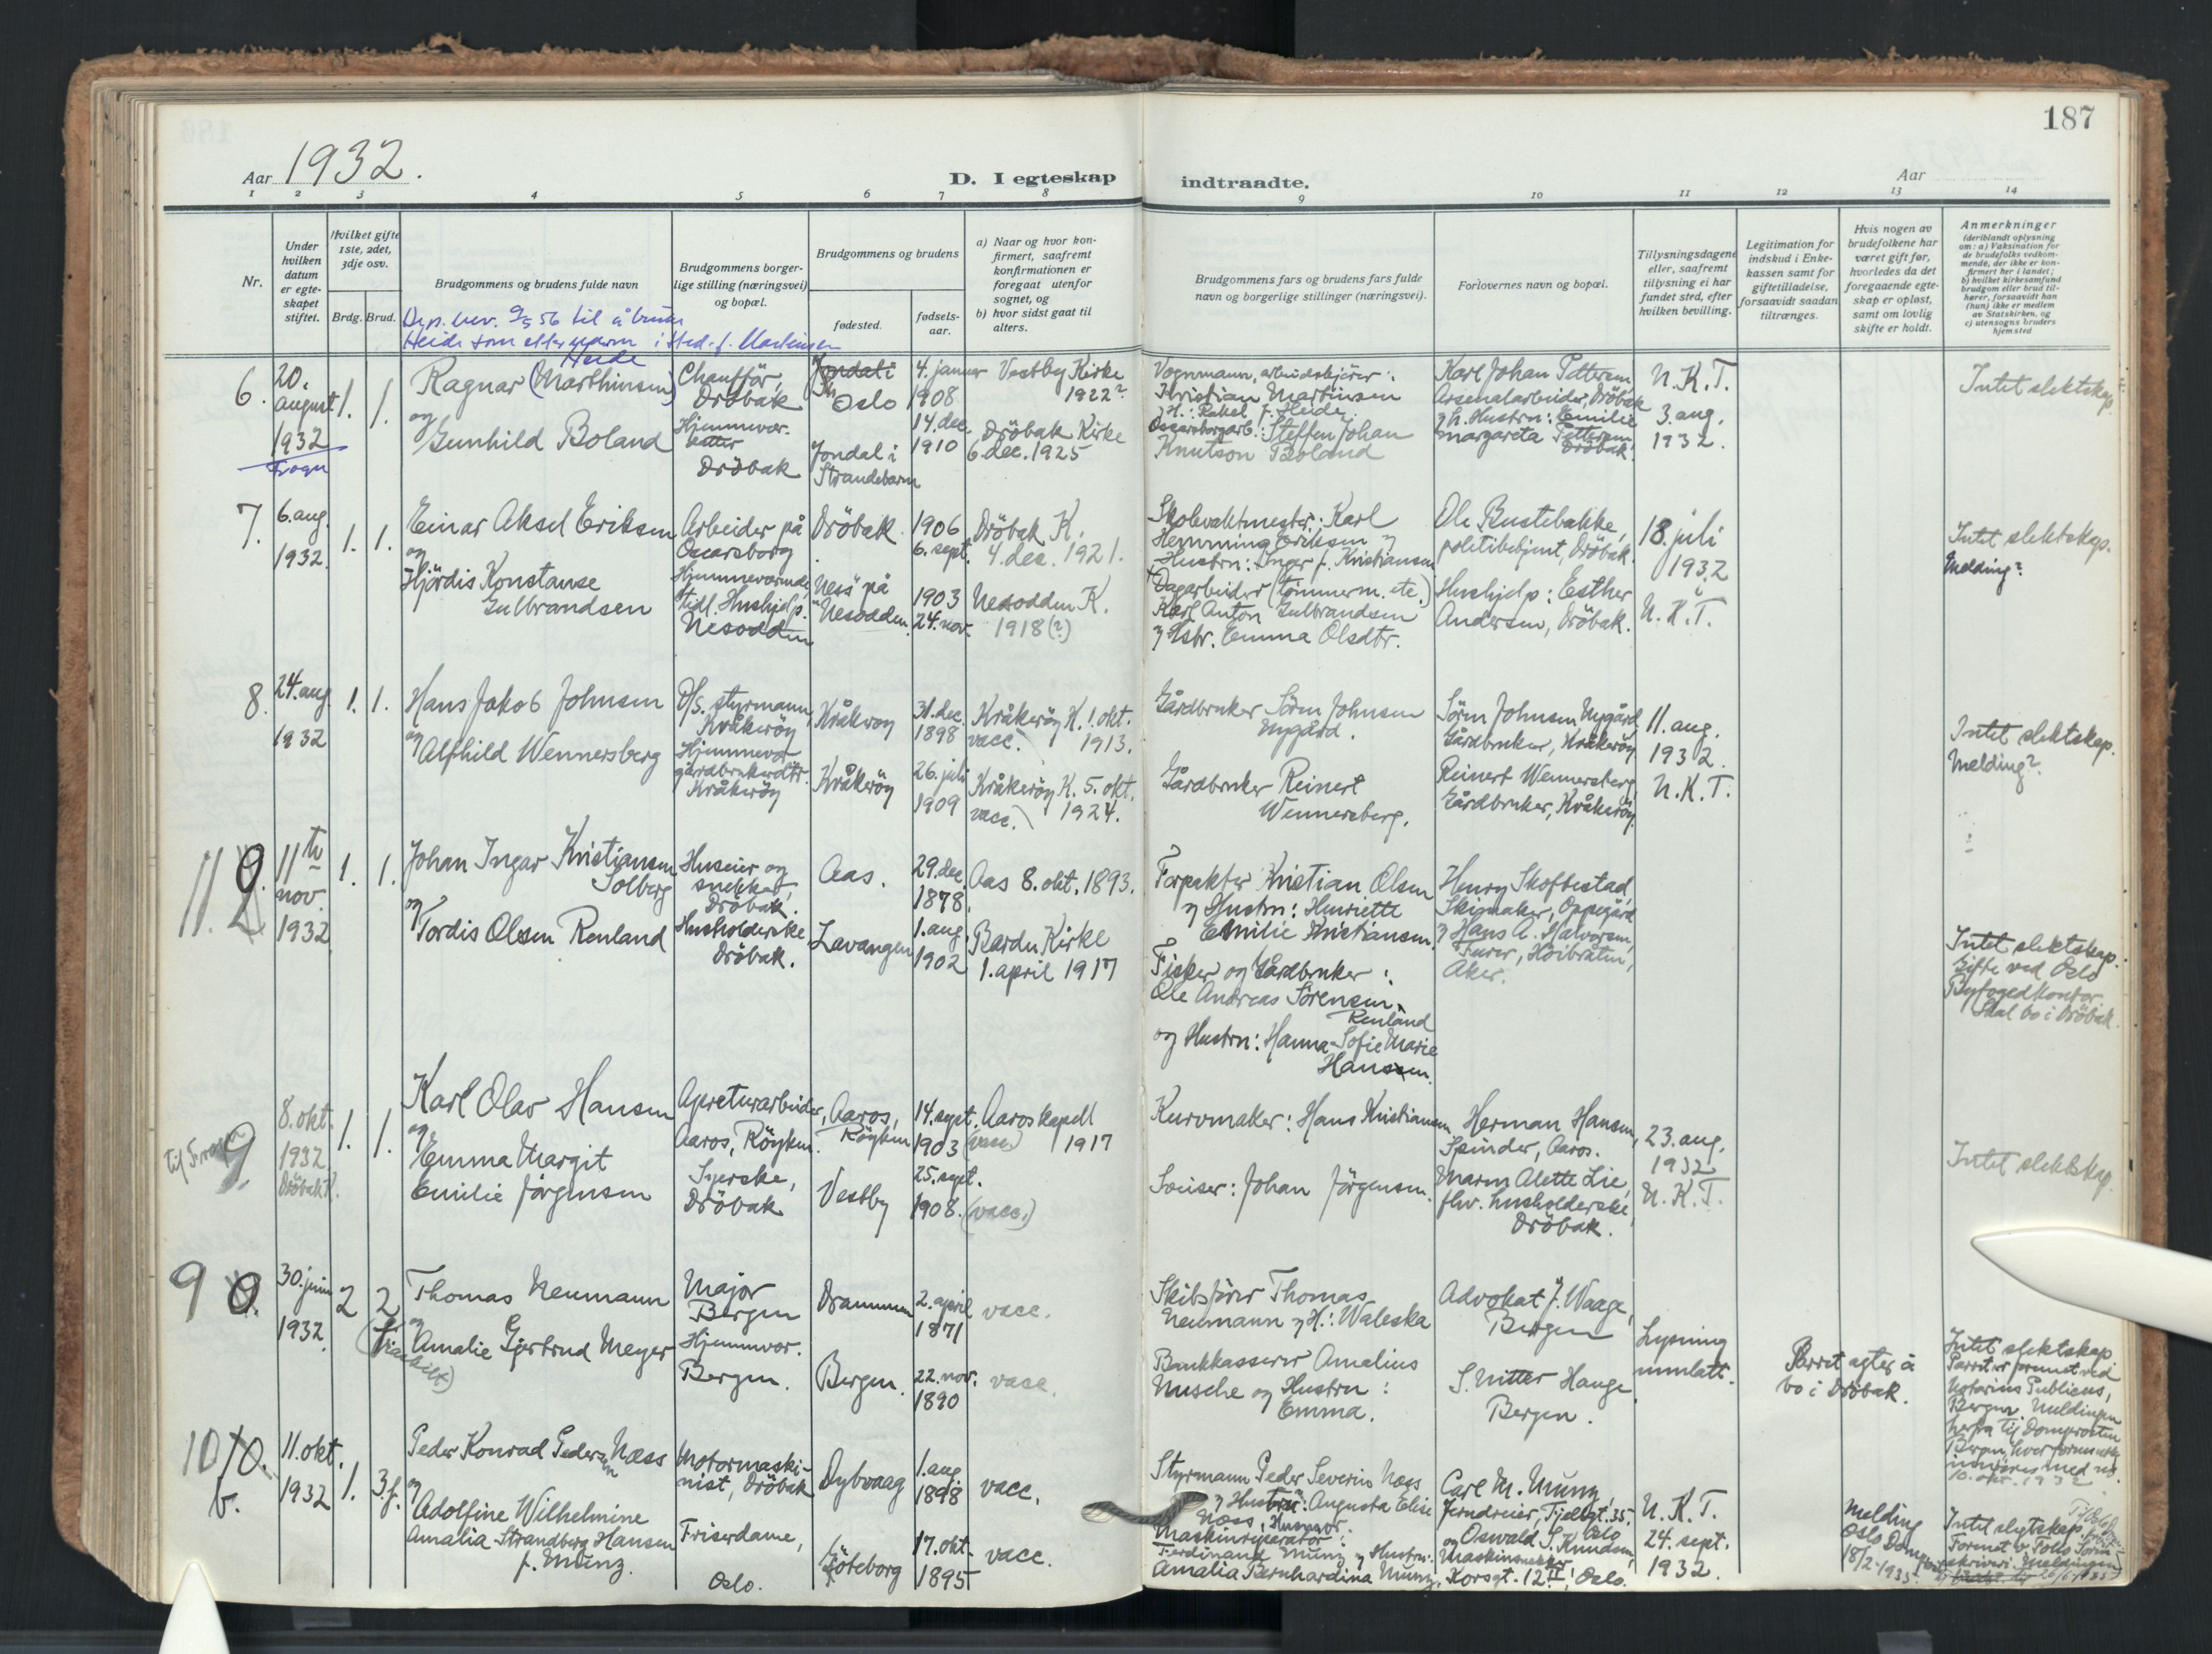 187
Aar 1932.
D. I egteskap indtraadte.
Aar
1 2 3 4 5 6 7 8 9 10 11 12 13 14
Nr.
Under hvilken datum er egteskapet stiftet.
Hvilket gifte 1ste, 2det, 3dje osv.
Brdg. Brud.
Brudgommens og brudens fulde navn
Brudgommens borgerlige stilling (næringsvei) og bopæl.
Brudgommens og brudens
fødested.
fødselsaar.
a) Naar og hvor konfirmert, saafremt konfirmationen er foregaat utenfor sognet, og
b) hvor sidst gaat til alters.
Brudgommens fars og brudens fars fulde navn og borgerlige stillinger (næringsvei).
Forlovernes navn og bopæl.
Tillysningsdagene eller, saafremt tillysning ei har fundet sted, efter hvilken bevilling.
Legitimation for indskud i Enkekassen samt for giftetilladelse, forsaavidt saadan tiltrænges.
Hvis nogen av brudefolkene har været gift før, hvorledes da det foregaaende egteskap er opløst, samt om lovlig skifte er holdt.
Anmerkninger (deriblandt oplysning om: a) Vaksination for de brudefolks vedkommende, der ikke er konfirmert her i landet; b) hvilket kirkesamfund brudgom eller brud tilhører, forsaavidt han (hun) ikke er medlem av Statskirken, og c) utensogns bruders hjemsted
Dep. bev. 9/5 56 til å bruke
Heide som etternavn i sted. f. Martinsen
6.
20. august 1932
Frogn
1. 1.
Heide
Ragnar (Marthinsen)
og
Gunhild Boland
Chauffør, Drøbak
Hjemmevær.
Drøbak
Jondal i
Oslo
Jondal i
Strandebarm
4. januar 1908
14. dec. 1910
Vestby Kirke
1922?
Drøbak Kirke
6. dec. 1925
Vognmann, arbeidskjører:
Kristian Martinsen
og H.: Rakel f. Heide.
Oscarsborgarb.: Steffen Johan
Knutson Boland
Karl Johan Pettersen
Arsenalarbeider, Drøbak
og h. Hustru: Emilie
Margareta Pettersen,
Drøbak.
N. K. T.
3. aug.
1932.
Intet slektskap.
7.
6. aug. 1932.
1. 1.
Einar Aksel Eriksen
og
Hjørdis Konstanse
Gulbrandsen
Arbeider på
Oscarsborg
Hjemmeværende,
tidl. Hushjelp.
Nesodden
Drøbak.
Ness på
Nesodden.
1906
6. sept.
1903
24. nov.
Drøbak K.
4. dec. 1921.
Nesodden K.
1918(?)
Skolevaktmester: Karl
Hemming Eriksen og
Hustru: Inger f. Kristiansen
Dagarbeider (tømmerm. etc.)
Karl Anton Gulbrandsen
og Hstr. Emma Olsdtr.
Ole Bustebakke,
politibetjent, Drøbak.
Hushjelp: Esther
Andersen, Drøbak.
18. juli
1932
N. K. T.
Intet slektskap.
Melding?
8.
24. aug. 1932
1. 1.
Hans Jakob Johnsen
og
Alfhild Wennersberg
D/S. styrmann,
Kråkerøy
Hjemmevær.
gårdbrukerdtr.
Kråkerøy
Kråkerøy
Kråkerøy
31. dec. 1898
26. juli 1909
Kråkerøy K. 1. okt.
vacc. 1913.
Kråkerøy K. 5. okt.
vacc. 1924.
Gårdbruker Søren Johnsen
Nygård.
Gårdbruker Reinert
Wennersberg.
Søren Johnsen Nygård
Gårdbruker, Kråkerøy
Reinert Wennersberg,
Gårdbruker, Kråkerøy.
11. aug.
1932.
N. K. T.
Intet slektskap.
Melding?
11. 9.
11te nov. 1932
1. 1.
Johan Ingar Kristiansen
Solberg
og
Tordis Olsen Renland
Huseier og
snekker,
Drøbak.
Husholderske
Drøbak.
Aas.
Lavangen
29. dec. 1878.
1. aug. 1902
Aas 8. okt. 1893.
Bardu Kirke
1. april 1917
Forpakter Kristian Olsen
og Hustru: Henriette
Emilie Kristiansen.
Fisker og Gårdbruker:
Ole Andreas Sørensen
Renland
og Hustru: Hanna Sofie Marie
Hansen.
Henry Skofbestad,
Skimaker, Oppegård
og Hans A. Halvorsen,
Furer, Høibråten,
Aker.
Intet slektskap.
Gifte ved Oslo
Byfogedkontor.
Skal bo i Drøbak.
til Frogn
9.
8. okt. 1932
Drøbak K.
1. 1.
Karl Olav Hansen
og
Emma Margit
Emilie Jørgensen
Apreturarbeider,
Aaros, Røyken.
Syerske,
Drøbak
Aaros,
Røyken
Vestby
14. sept. 1903
25. sept. 1908.
Aaros kapell
(vacc.) 1917
(vacc.)
Kurvmaker: Hans Kristiansen
Sveiser: Johan Jørgensen.
Herman Hansen,
Spinder, Aaros.
Maren Alette Lie,
fhv. husholderske,
Drøbak.
23. aug.
1932
N. K. T.
Intet slektskap.
9 0.
30. juni 1932.
2 2
Thomas Neumann
og
Amalie Gjertrud Meyer
Major
Bergen
Hjemmevær.
Bergen.
Drammen
Bergen.
2. april 1871
22. nov. 1890
vacc.
vacc.
Skibsfører Thomas
Neumann og H.: Waleska
Bankkasserer Amalius
Nusche og Hustru:
Emma.
Advokat J. Waage,
Bergen
S. Nitter Hauge
Bergen.
Lysning
unnlatt.
Parret agter å
bo i Drøbak.
Intet slektskap
Parret er formet ved
Notarius Publicus,
Bergen. Meldingen
herfra til Domprosten
Bergen,
10. okt. 1932
10 10.
b.
11. okt. 1932
1. 3. f.
Peder Konrad Pedersen Næss
og
Adolfine Wilhelmine
Amalia Strandberg Hansen
f. Münz.
Motormaskinist, Drøbak
Friserdame,
Oslo.
Dybvaag
Göteborg
1. aug. 1898
17. okt. 1895
vacc.
vacc.
Styrmann Peder Severin Næss
og Hustru: Augusta Elise
Næss, Husmor.
Maskinreparatør:
Ferdinand Münz og Hustru:
Amalia Bernhardina Münz,
Carl M. Münz,
Jerndreier, Fjellgt. 35,
Oslo
og Oswald S. Knudsen,
Maskinsnekker,
Korsgt. 12 II, Oslo.
N. K. T.
24. sept.
1932.
Melding
Oslo Domprost
18/2-1935.
Intet slektskap.